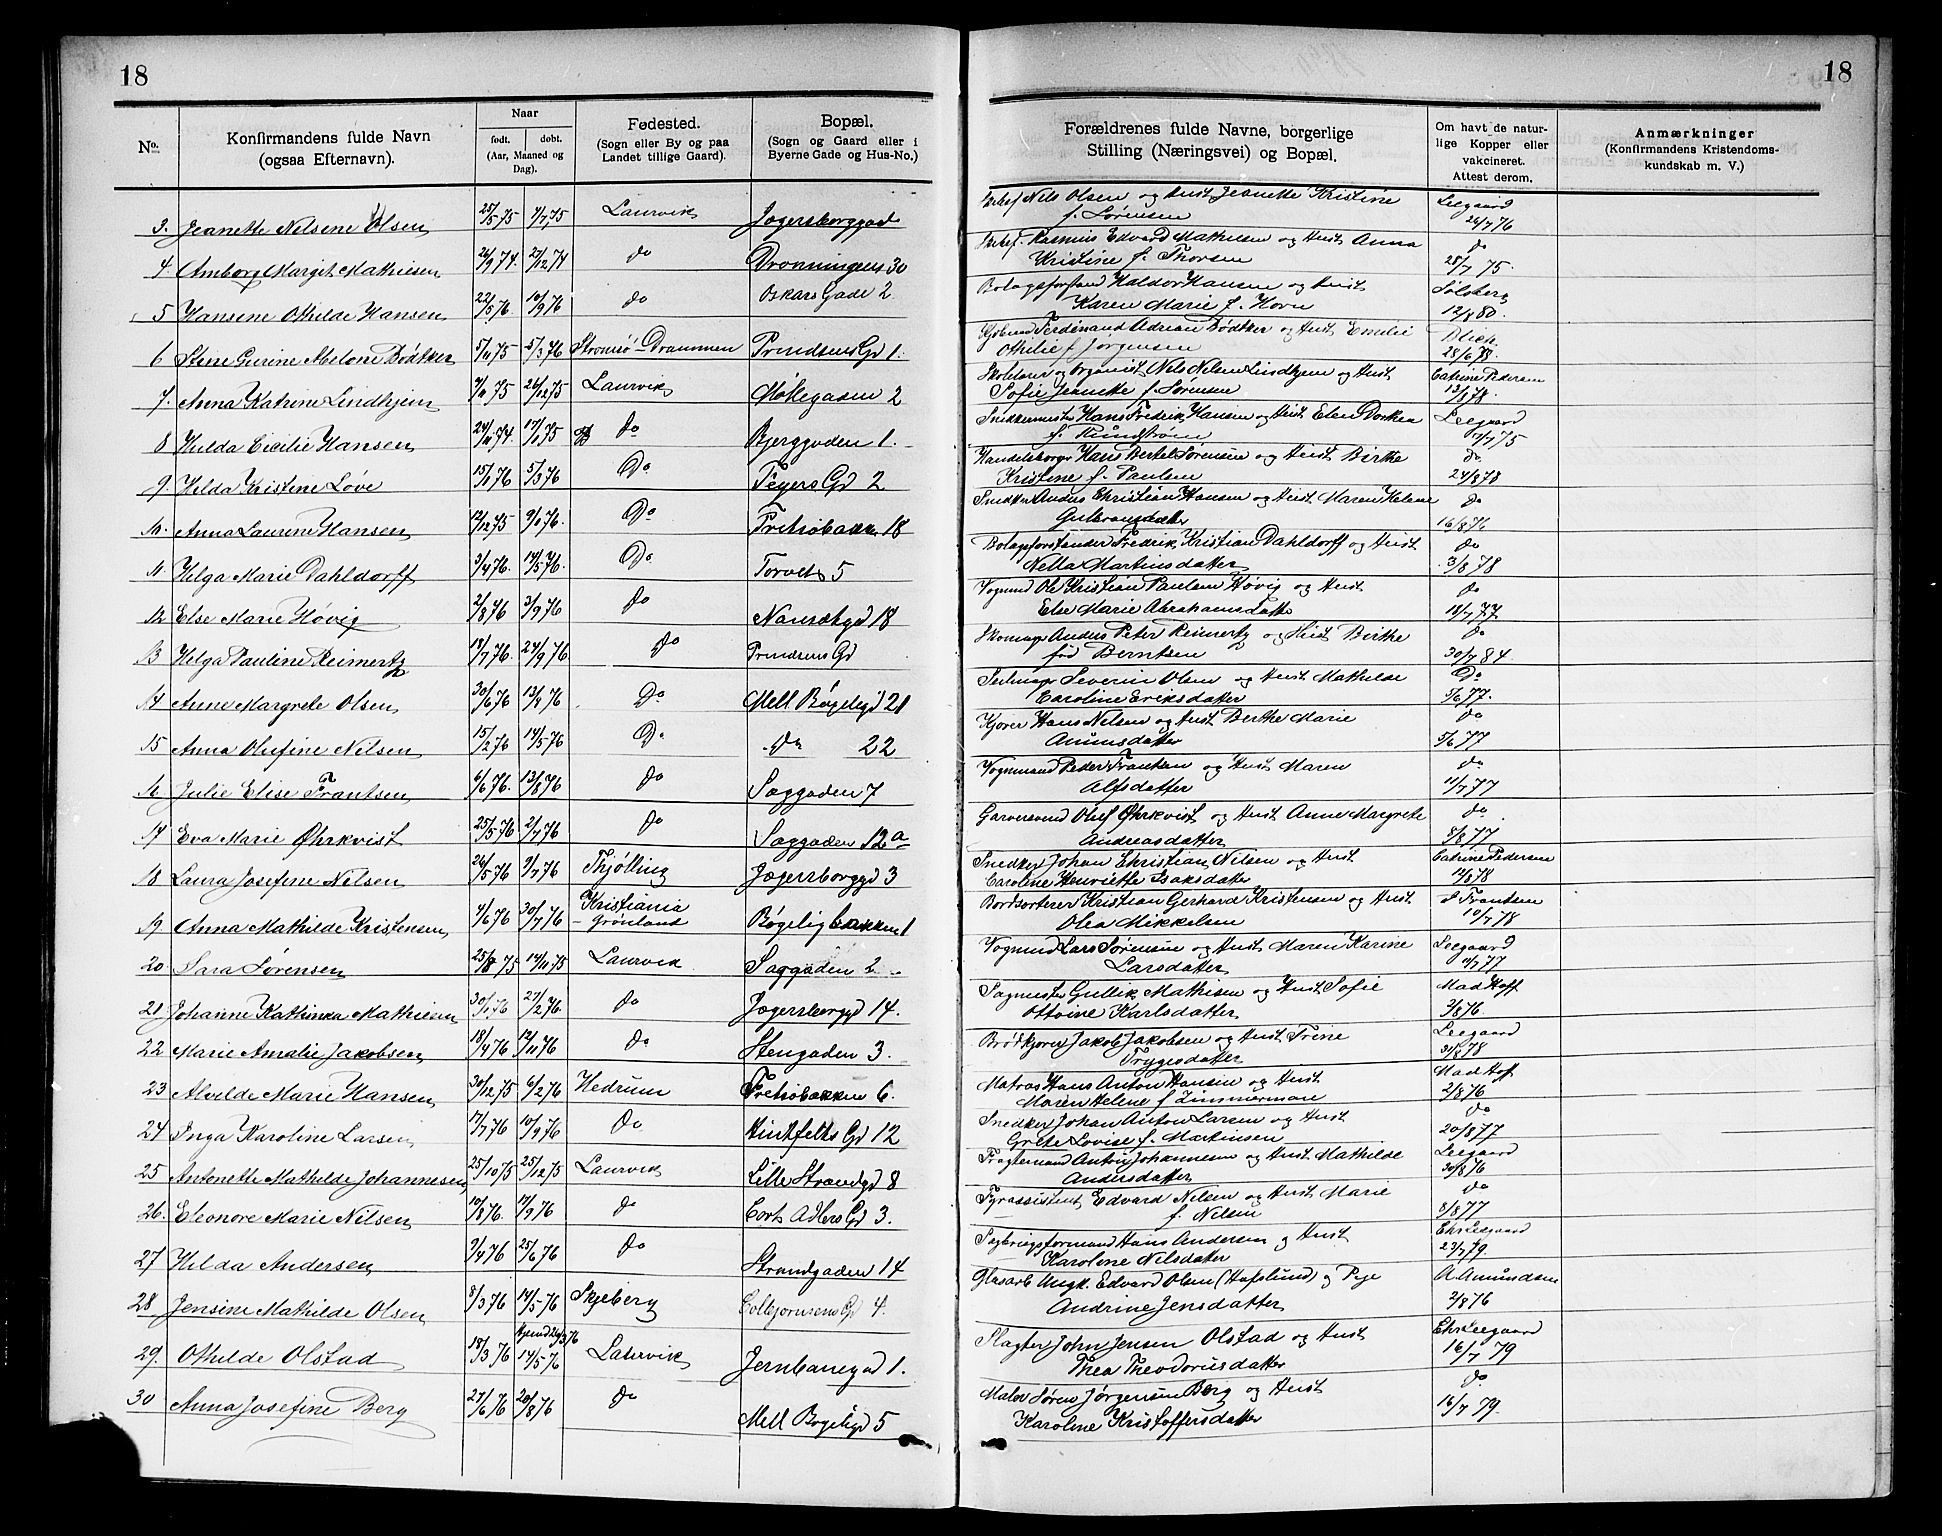 18
No.
Konfirmandens fulde Navn
(ogsaa Efternavn).
Naar
født. døbt.
(Aar, Maaned og
Dag).
Fødested.
(Sogn eller By og paa
Landet tillige Gaard).
Bopæl.
(Sogn og Gaard eller i
Byerne Gade og Hus-No.)
3. Jeanette Nilsine Olsen 25/5 75 4/7 75 Laurvik Jegersborggad
4 Amborg Margit Mathisen 26/9 74. 2/12 74 do Dronningens 30
5 Hansine Othilde Hansen 22/5 76 10/9 76 do Oskars Gade 2
6 Stine Gurine Abelone Bødtker 5/11 75 5/3 76 Strømsø-Drammen Prindsens Gd 1.
7. Anna Katrine Lindhjem 26/12 75 Laurvik Møllegaden 2
8 Hulda Cecilie Hansen 24/11 74. 17/1 75 Do Bjerggaden 1.
9. Hilda Kristine Løve 15/1 76 5/3 76 Do Tegers Gd 2
10. Anna Laurine Hansen 12/12 75 9/1 76. Do Fretrøbakken 18
11. Helga Marie Dahldorff 3/4 76. 14/5 76. Do Torvets 5
12 Else Marie Høvig 2/8 76 3/9 76 do Nansetgd 18
13 Helga Pauline Reimertz 18/7 76. 24/9 76 do Prindsens Gd
14 Anne Margrete Olsen 30/6 76 13/8 76 Do Mell Bøgeligd 21
15 Anna Olufine Nilsen 15/2 76 14/5 76 Do do 22
16 Julie Elise Frantsen 6/6 76. 13/8 76 do Saggaden 7
17 Eva Marie Øhrkvist 25/5 76 2/7 76 do Saggaden 12a
18 Laura Josefine Nilsen 26/5 76 9/7 76 Thjølling Jægersborggd 3
19 Anna Mathilde Kristensen 4/6 76 30/7 76 Kristiania
- Grønland Bøgeligbakken 1
20 Sara Sørensen 25/8 75 14/11 75 Laurvik Saggaden 2
21 Johanne Kathinka Mathisen 30/1 76 27/2 76. do Jægersborgd 14.
22 Marie Amalie Jakobsen 18/4 76 12/11 76 do Stengaden 3.
23 Alvilde Marie Hansen 30/12 75 6/2 76 Hedrum Fretrøbakken 6.
24 Inga Karoline Larsen 17/7 76 10/9 76 Do Huitfelts Gd 12
25 Antonette Mathilde Johannesen 25/10 75 25/12 75 Laurvik Lille Strandgd 8
26. Eleonore Marie Nilsen 10/8 76. 17/9 76 do Corts Adlers Gd 3.
27 Hilda Andersen 9/4 76 25/6 76 do Strandgaden 14
28 Jensine Mathilde Olsen 8/3 76 14/5 76 Skjeberg Colbjørnsens Gd 4.
29. Othilde Olstad 18/3 76 14/5 76 Laurvik Jernbanegad 1.
30 Anna Josefine Berg 27/6 76 20/8 76 do Mell Bøgeligd 5
18
Forældrenes fulde Navne, borgerlige
Stilling (Næringsvei) og Bopæl.
Om havt de natur-
lige Kopper eller
vakcineret.
Attest derom.
Anmærkninger
(Konfirmandens Kristendoms-
kundskab m. V.)
Nils Olsen og Hust Jeanette Kristine Leegaard
f. Sørensen 26/7 76
Rasmus Edvard Mathisen og Hust Anna do
Kristine f. Thorsen 28/7 75.
Bolagsforstand Haldor Hansen og Hust Solsberg
Karen Marie f. Horn 12/8 80.
Ferdinand Adrian Bødtker og Hust Emilie Blich
Othilie f Jørgensen 28/6 78.
Skolelærer og Organist Nils Nilsen Lindhjem og Hust Catrine Pedersen
Sofie Jeanette f. Sørensen 13/8 78.
Snedkermester Hans Fredrik Hansen og Hust Elen Dorthea Leegaard
f. Rundstrøm 7/7 75
Handelsborger Hans Bertel Sørensen og Hust Birthe do.
Kristine f. Paulsen 24/8 78
Snedker Anders Christian Hansen og Hust Maren Helene do
Gulbrandsdatter 16/8 76
Bolagsforstander Fredrik Kristian Dahldorff og Hust do
Nella Martinsdatter 3/8 78
Vognmand Ole Kristian Paulsen Høvig og Hust do
Else Marie Abrahamsdatter 14/7 77.
Skomager Anders Peter Reimertz og Hust Birthe do
fød Berntsen 30/7 84.
Severin Olsen og Hust Mathilde Do
Caroline Eriksdatter 5/6 77.
Kjører Hans Nilsen og Hust Berthe Marie do
Amunsdatter 5/6 77
Vognmand Peder Frantsen og Hust Maren do
Alfsdatter 11/7 77
Garversvend Oluf Øhrkvist og Hust Anne Margrete do
Andreasdatter 8/8 77
Snedker Johan Christian Nilsen og Hust Catrine Pedersen
Caroline Henriette Isaksdatter 14/8 78
Bordsorterer Kristian Gerhard Kristensen og Hust J Frantsen
Olea Mikkelsen 10/7 78
Vogmand Lars Sørensen og Hust Maren Karine Leegaard
Larsdatter 11/7 77
Sagmester Gullik Mathisen og Hust Sofie Mad Hoff
Ottoine Karlsdatter 2/8 76.
Brødkjører Jakob Jakobsen og Hust Trine Leegaard
Trygesdatter 31/8 78
Matros Hans Anton Hansen og Hust Mad Hoff
Maren Helene f Zimmerman 2/8 76
Snedker Johan Anton Larsen og Hust do
Grete Lovise f. Martinsen 20/8 77
Fragtemand Anton Johannesen og Hust Mathilde Leegaard
Andersdatter 30/8 76
Fyrassistent Edvard Nilsen og Hust Marie do
f. Nilsen 3/8 77
Sagbrugsformand Hans Andersen og Hust Chr Leegaard
Karoline Nilsdatter 23/7 79.
Glasarb Ungk. Edvard Olsen (Hafslund) og Pige A Amundsen
Andrine Jensdatter 2/8 76
Slagter John Jensen Olstad og Hust Chr Leegaard
Thea Theodorusdatter 16/7 79
Maler Søren Jørgensen Berg og Hust do
Karoline Kristoffersdatter 16/7 79.